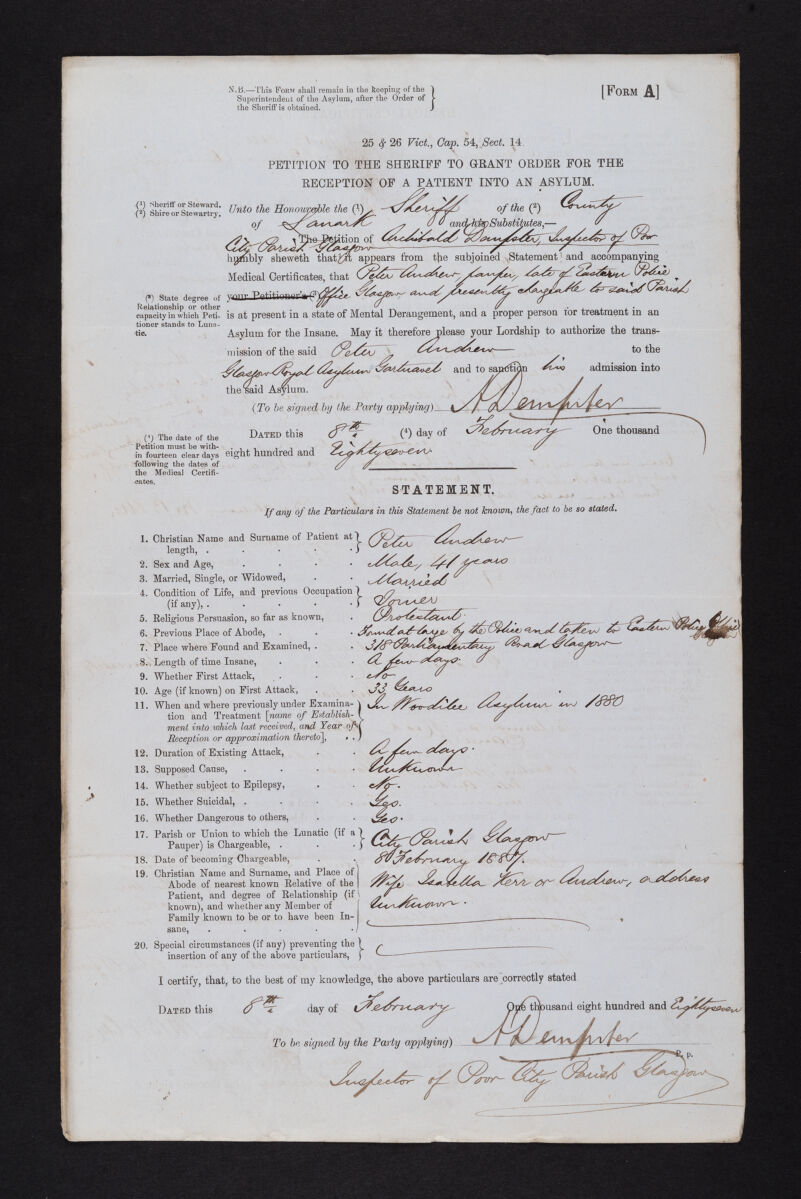 N.B.—This Form shall remain in the keeping of the
Superintendent of the Asylum, after the Order of
the Sheriff is obtained.
[Form A]
25 & 26 Vict., Cap. 54, Sect. 14
PETITION TO THE SHERIFF TO GRANT ORDER FOR THE
RECEPTION OF A PATIENT INTO AN ASYLUM.
(1) Sheriff or Steward.
(2) Shire or Stewartry.
Unto the Honourable the (1) Sheriff of the (2) County
of Lanark and his Substitutes,—
The Petition of Archibald Dempster, Inspector of Poor
City Parish Glasgow
humbly sheweth that it appears from the subjoined Statement and accompanying
Medical Certificates, that Peter Andrew, pauper, late of Eastern Police
(3) State degree of
Relationship or other
capacity in which Peti-
tioner stands to Luna-
tic.
your Petitioner's (3) Office Glasgow and presently chargeable to said Parish
is at present in a state of Mental Derangement, and a proper person for treatment in an
Asylum for the Insane. May it therefore please your Lordship to authorize the trans-
mission of the said Peter Andrew to the
Glasgow Royal Asylum Gartnavel and to sanction his admission into
the said Asylum.
(To be signed by the Party applying) A Dempster
(4) The date of the
Petition must be with-
in fourteen clear days
following the dates of
the Medical Certifi-
cates.
Dated this 8th (4) day of February One thousand
eight hundred and Eighty seven
STATEMENT.
If any of the Particulars in this Statement be not known, the fact to be so stated.
1. Christian Name and Surname of Patient at
length, . Peter Andrew
2. Sex and Age, Male, 41 years
3. Married, Single, or Widowed, Married
4. Condition of Life, and previous Occupation
(if any), . Joiner
5. Religious Persuasion, so far as known, Protestant
6. Previous Place of Abode, Found at large by the Police and taken to Eastern Police Office
7. Place where Found and Examined, . 318 Parliamentary Road Glasgow
8. Length of time Insane, A few days.
9. Whether First Attack, No
10. Age (if known) on First Attack, 33 Years
11. When and where previously under Examina-
tion and Treatment [name of Establish-
ment into which last received, and Year of
Reception or approximation thereto], In Woodilee Asylum in 1880
12. Duration of Existing Attack, A few days.
13. Supposed Cause, Unknown
14. Whether subject to Epilepsy, No.
15. Whether Suicidal, . Yes.
16. Whether Dangerous to others, Yes.
17. Parish or Union to which the Lunatic (if a
Pauper) is Chargeable, . City Parish Glasgow
18. Date of becoming Chargeable, 8 February 1887.
19. Christian Name and Surname, and Place of
Abode of nearest known Relative of the
Patient, and degree of Relationship (if
known), and whether any Member of
Family known to be or to have been In-
sane, Wife Isabella Kerr or Andrew, address
Unknown.
20. Special circumstances (if any) preventing the
insertion of any of the above particulars,
I certify, that, to the best of my knowledge, the above particulars are correctly stated
Dated this 8th day of February One thousand eight hundred and Eighty seven
To be signed by the Party applying) A Dempster
P. P.
Inspector of Poor City Parish Glasgow